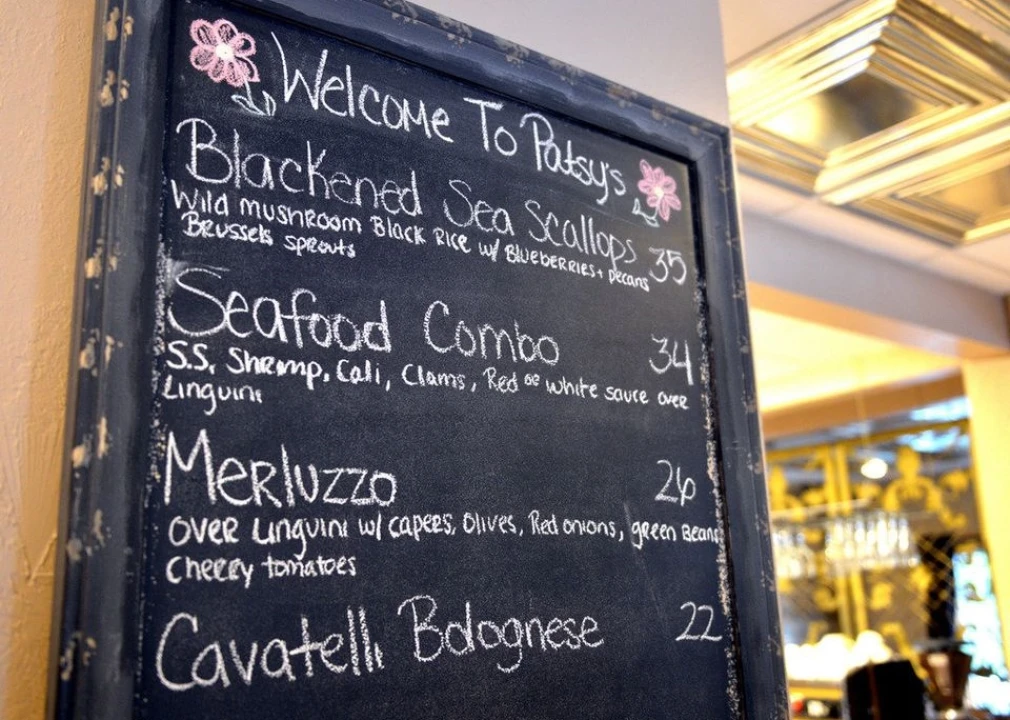 Welcome To Patsy's
Blackened Sea Scallops 35
Wild mushroom Black Rice w/ Blueberries + pecans
Brussels sprouts
Seafood Combo 34
S.S. Shrimp, Cali, Clams, Red or white sauce over
Linguini
Merluzzo 26
over Linguini w/ capers, Olives, Red onions, green beans
Cherry tomatoes
Cavatelli Bolognese 22